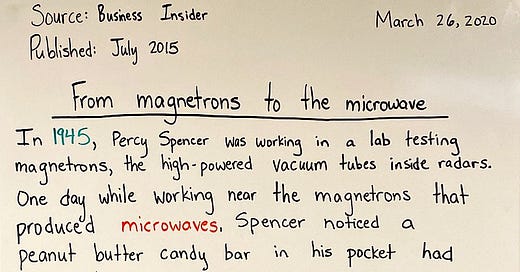 Source: Business Insider
March 26, 2020
Published: July 2015
From magnetrons to the microwave
In 1945, Percy Spencer was working in a lab testing
magnetrons, the high-powered vacuum tubes inside radars.
One day while working near the magnetrons that
produced microwaves, Spencer noticed a
peanut butter candy bar in his pocket had